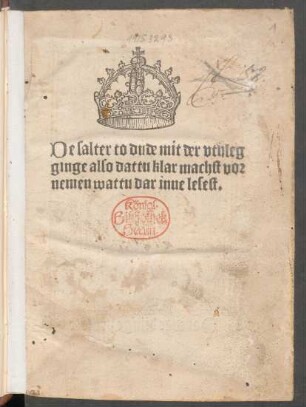 1053293
De salter to dude mit der vthleg
ginge also dattu klar machst vor
nemen wattu dar inne lesest.
Königl.
Bibliothek
Berlin